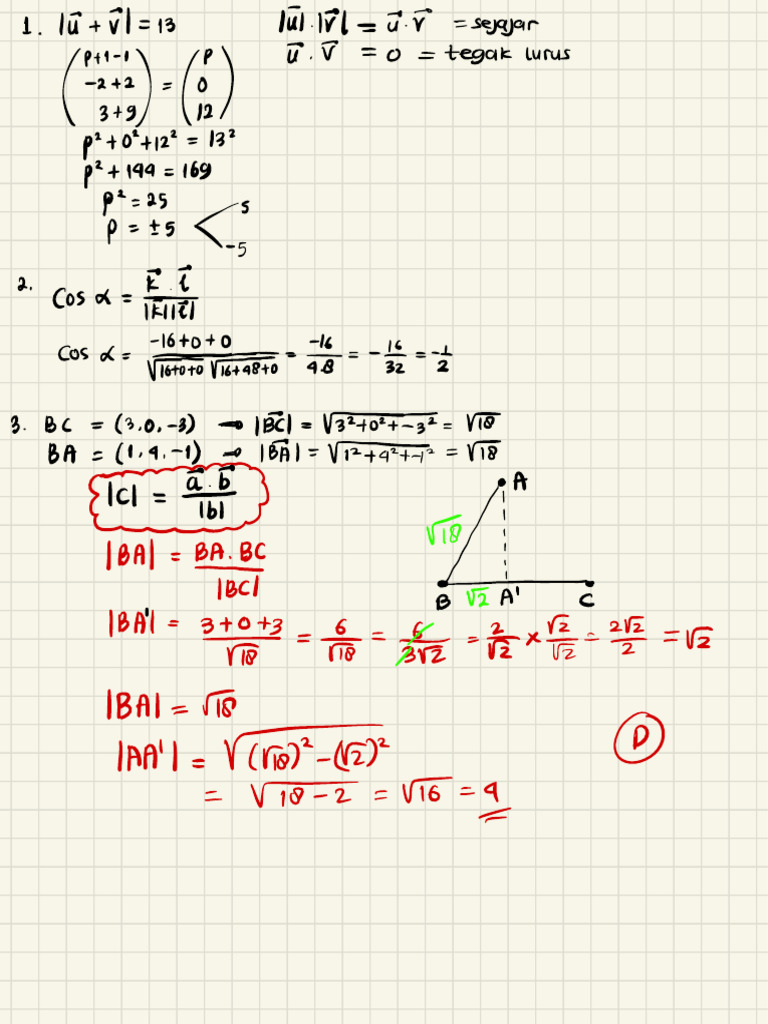 1. |u⃗ + v⃗| = 13
|u⃗|.|v⃗| = u⃗.v⃗ = sejajar
u⃗ . v⃗ = 0 = tegak lurus
(p+1-1) = (p)
(-2+2) = (0)
(3+9) = (12)
p² + 0² + 12² = 13²
p² + 144 = 169
p² = 25
p = ±5 < 5
-5
2. Cos α = k⃗ . l⃗ / |k⃗||l⃗|
Cos α = -16+0+0 / √16+0+0 √16+48+0 = -16/48 = -16/32 = -1/2
3. BC = (3,0,-3) → |BC⃗| = √3²+0²+-3² = √18
BA = (1,4,-1) → |BA⃗| = √1²+4²+-1² = √18
|C| = a⃗ . b⃗ / |b|
A
√18
B √2 A' C
|BA| = BA . BC / |BC|
|BA'| = 3+0+3 / √18 = 6/√18 = 6/3√2 = 2/√2 × √2/√2 = 2√2/2 = √2
|BA| = √18
|AA'| = √(√18)² - (√2)²
= √18 - 2 = √16 = 4
D